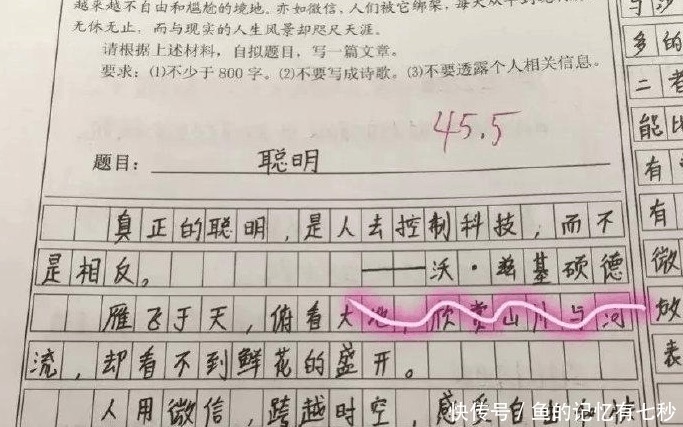 越来越不自由和尴尬的境地。亦如微信，人们被它绑架，每天
无休无止，而与现实的人生风景却咫尺天涯。
请根据上述材料，自拟题目，写一篇文章。
要求：(1)不少于800字。(2)不要写成诗歌。(3)不要透露个人相关信息。
45.5
题目： 聪明
真正的聪明，是人去控制科技，而不
是相反。 ——沃·兹基硕德
雁飞于天，俯看大地，欣赏山川与河
流，却看不到鲜花的盛开。
人用微信，跨越时空，感受自由
多的
二者
能比
有
有
微
放
表
快传号 / 鱼的记忆有七秒